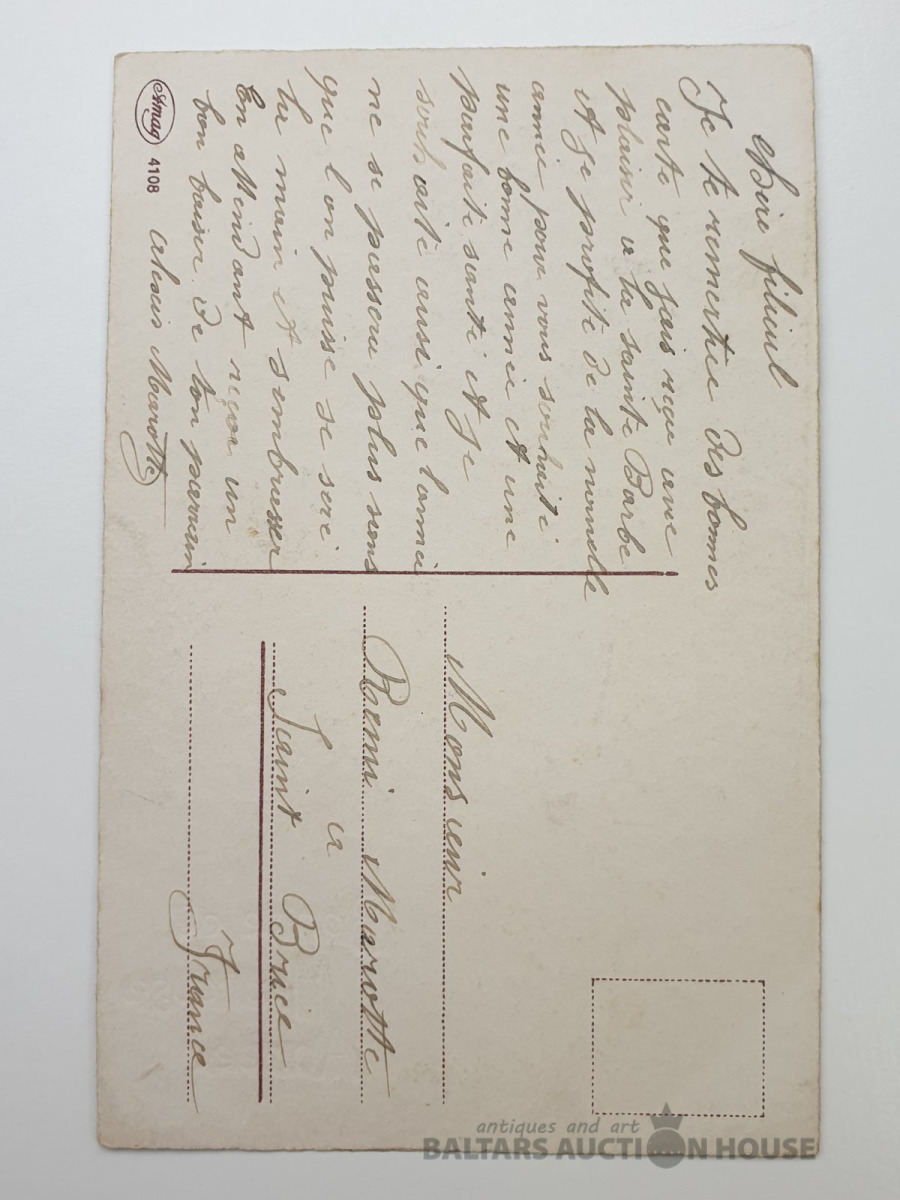 Chère filieul
Je te remertie des bonnes
carte que jais reçue avec
plaisir a la sainte Barbe
et je profite de la nouvelle
année pour vous souhaité
une bonne année et une
parfaite santé et je
souhaité aussi que l'année
ne se passera plus sens
que l'on puisse se seré
la main et s'embrasser
En attendant reçoi un
bon baiser de ton parrain
Marotte
Amag 4108
Monsieur
Remi Marotte
a
Saint Brice
France
antiques and art
BALTARS AUCTION HOUSE